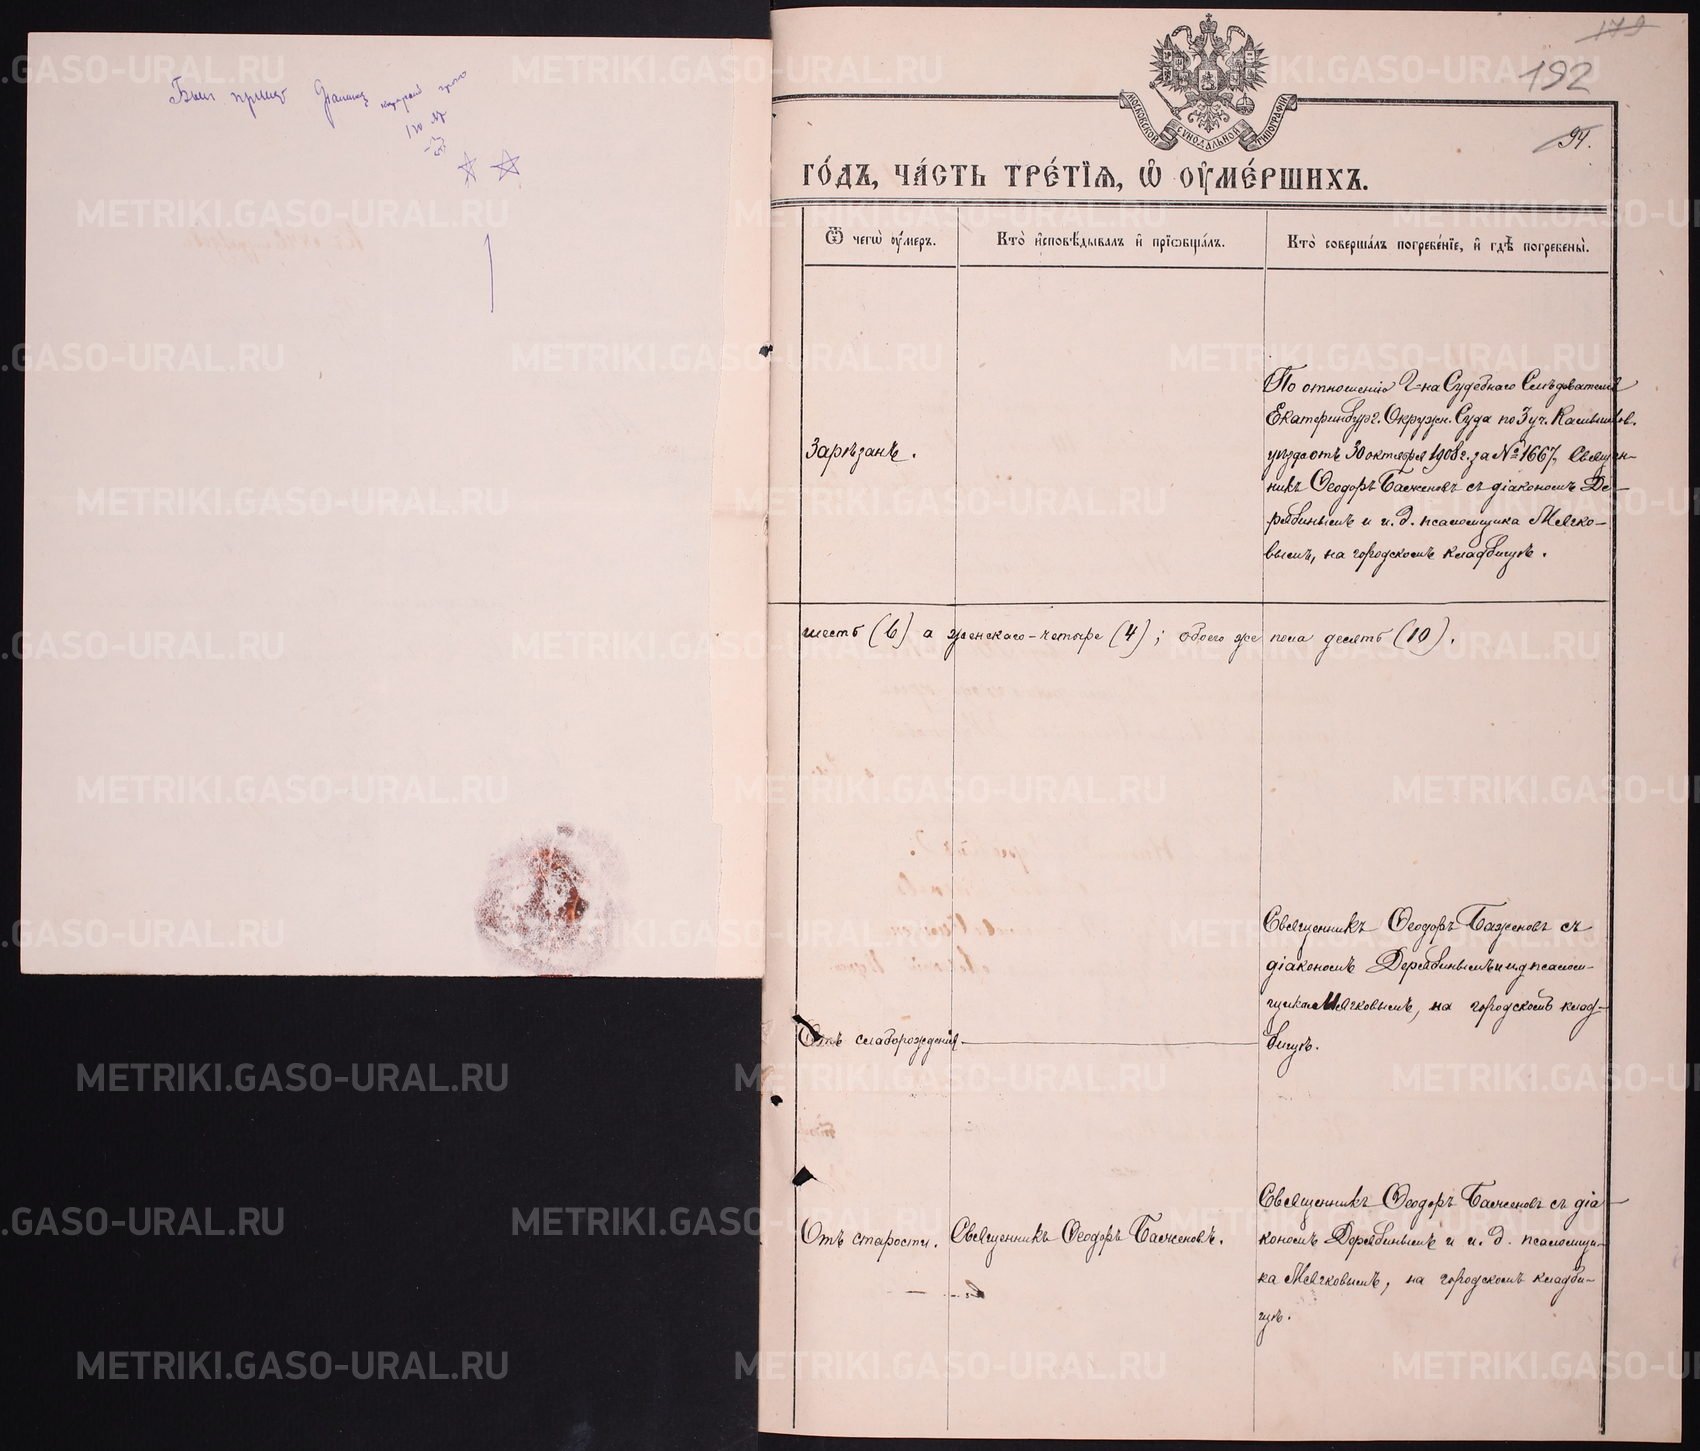 Был
192
94.
МОСКОВСКОЙ СУНОДАЛЬНОЙ ТИПОГРАФІИ
ГО́ДЪ, ЧА́СТЬ ТРЕ́ТІѦ, Ѽ ОУМЕ́РШИХЪ.
Ѿ чегѡ̀ оу́меръ.
Кто̀ и҆сповѣ́дывалъ и҆ прїѡбща́лъ.
Кто̀ соверша́лъ погребе́нїе, и҆ гдѣ̀ погребены̀.
Зарѣзанъ.
По отношенію Г-на Судебнаго Слѣдователя
Екатеринбург. Окружн. Суда по 3 уч. Камышлов.
уѣзда отъ 30 октября 1908 г. за № 1667, Священ-
никъ Ѳеодоръ Баженовъ съ діакономъ Де-
рябинымъ и и. д. псаломщика Мягко-
вымъ, на городскомъ кладбищѣ.
шесть (6) а женскаго - четыре (4); обоего же пола десять (10).
Отъ слаборожденія.
Священникъ Ѳеодоръ Баженовъ съ
діакономъ Дерябинымъ и и. д. псалом-
щика Мягковымъ, на городскомъ клад-
бищѣ.
Отъ старости.
Священникъ Ѳеодоръ Баженовъ.
Священникъ Ѳеодоръ Баженовъ съ діа-
кономъ Дерябинымъ и и. д. псаломщи-
ка Мягковымъ, на городскомъ кладби-
щѣ.
METRIKI.GASO-URAL.RU